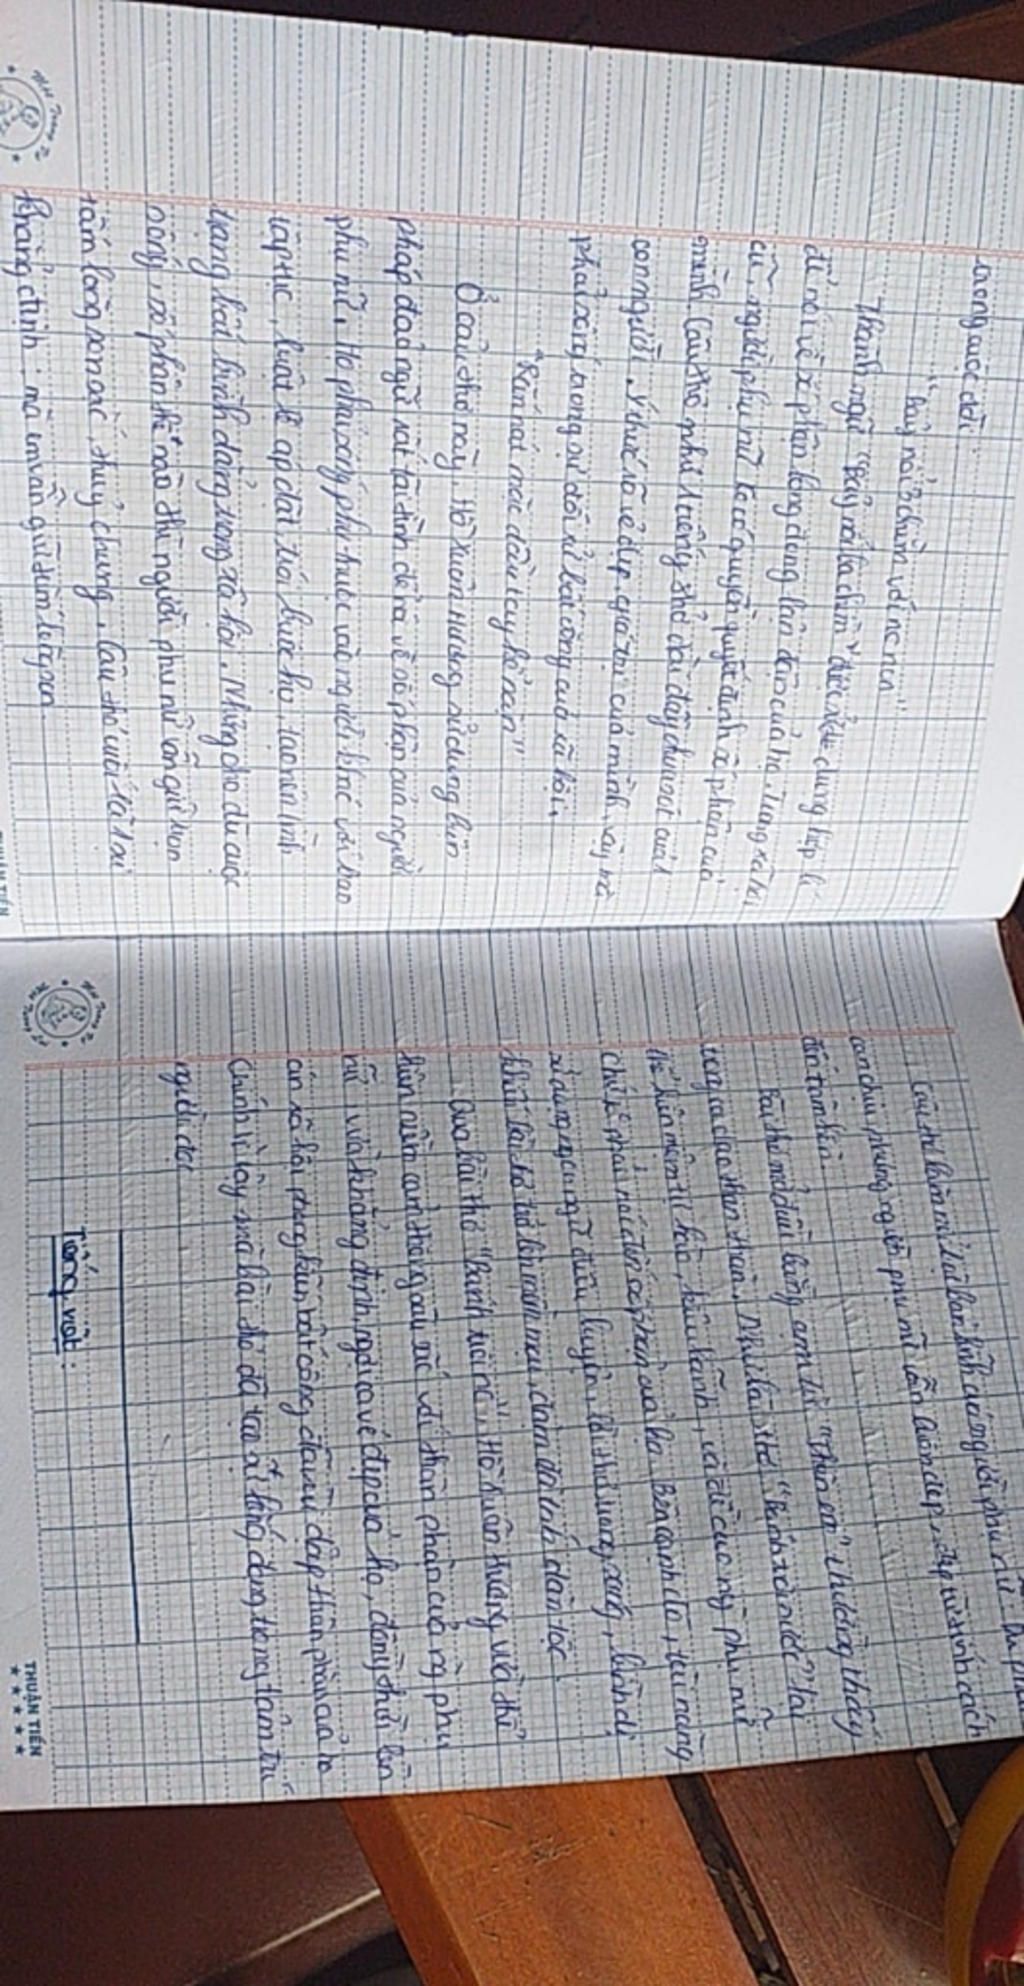 trong cuộc đời:
"Bảy nổi ba chìm với nước non"
Thành ngữ "Bảy nổi ba chìm" được sử dụng tiếp
để nói về số phận long đong lận đận của họ. Trong xã hội
cũ, người phụ nữ ko có quyền quyết định số phận của
mình. Câu thơ như 1 tiếng thở dài đầy chua xót của 1
con người ý thức rõ vẻ đẹp, giá trị của mình, vậy mà
phải sống trong sự đối xử bất công của xã hội.
"Rắn nát mặc dầu tay kẻ nặn"
Ở câu thơ này, Hồ Xuân Hương sử dụng biện
pháp đảo ngữ rất tài tình để nói về số phận của người
phụ nữ. Họ phải sống phụ thuộc vào người khác với bao
tập tục, luật lệ áp đặt trói buộc họ, tạo nên tình
trạng bất bình đẳng trong xã hội. Nhưng cho dù cuộc
sống, số phận thế nào thì người phụ nữ vẫn giữ trọn
tấm lòng son sắc, thuỷ chung. Câu thơ cuối là 1 sự
khẳng định: mà em vẫn giữ tấm lòng son
Câu thơ làm nổi bật bản lĩnh của người phụ nữ. Dù phải
cam chịu nhưng người phụ nữ vẫn luôn đẹp, đẹp từ tính cách
đến tâm hồn.
Bài thơ mở đầu bằng cụm từ "Thân em" thường thấy
trong ca dao than thân. Nhưng bài thơ "Bánh trôi nước" lại
thể hiện niềm tự hào, kiêu hãnh, về đề cao ng phụ nữ
chứ k phải nói đến số phận của họ. Bên cạnh đó, tài năng
sử dụng ngôn ngữ điêu luyện, lời thơ trong sáng, bình dị
khiến bài thơ trở nên mới mẻ, đậm đà tính dân tộc.
Qua bài thơ "Bánh trôi nước", Hồ Xuân Hương vừa thể
hiện niềm cảm thông sâu sắc với thân phận của ng phụ
nữ vừa khẳng định, ngợi ca vẻ đẹp của họ, đồng thời lên
án xã hội phong kiến bất công đã vùi dập thân phận của họ
Chính vì vậy mà bài thơ đã tạo ấn tượng đọng trong tâm trí
người đọc
Tiếng việt:
THUẬN TIẾN